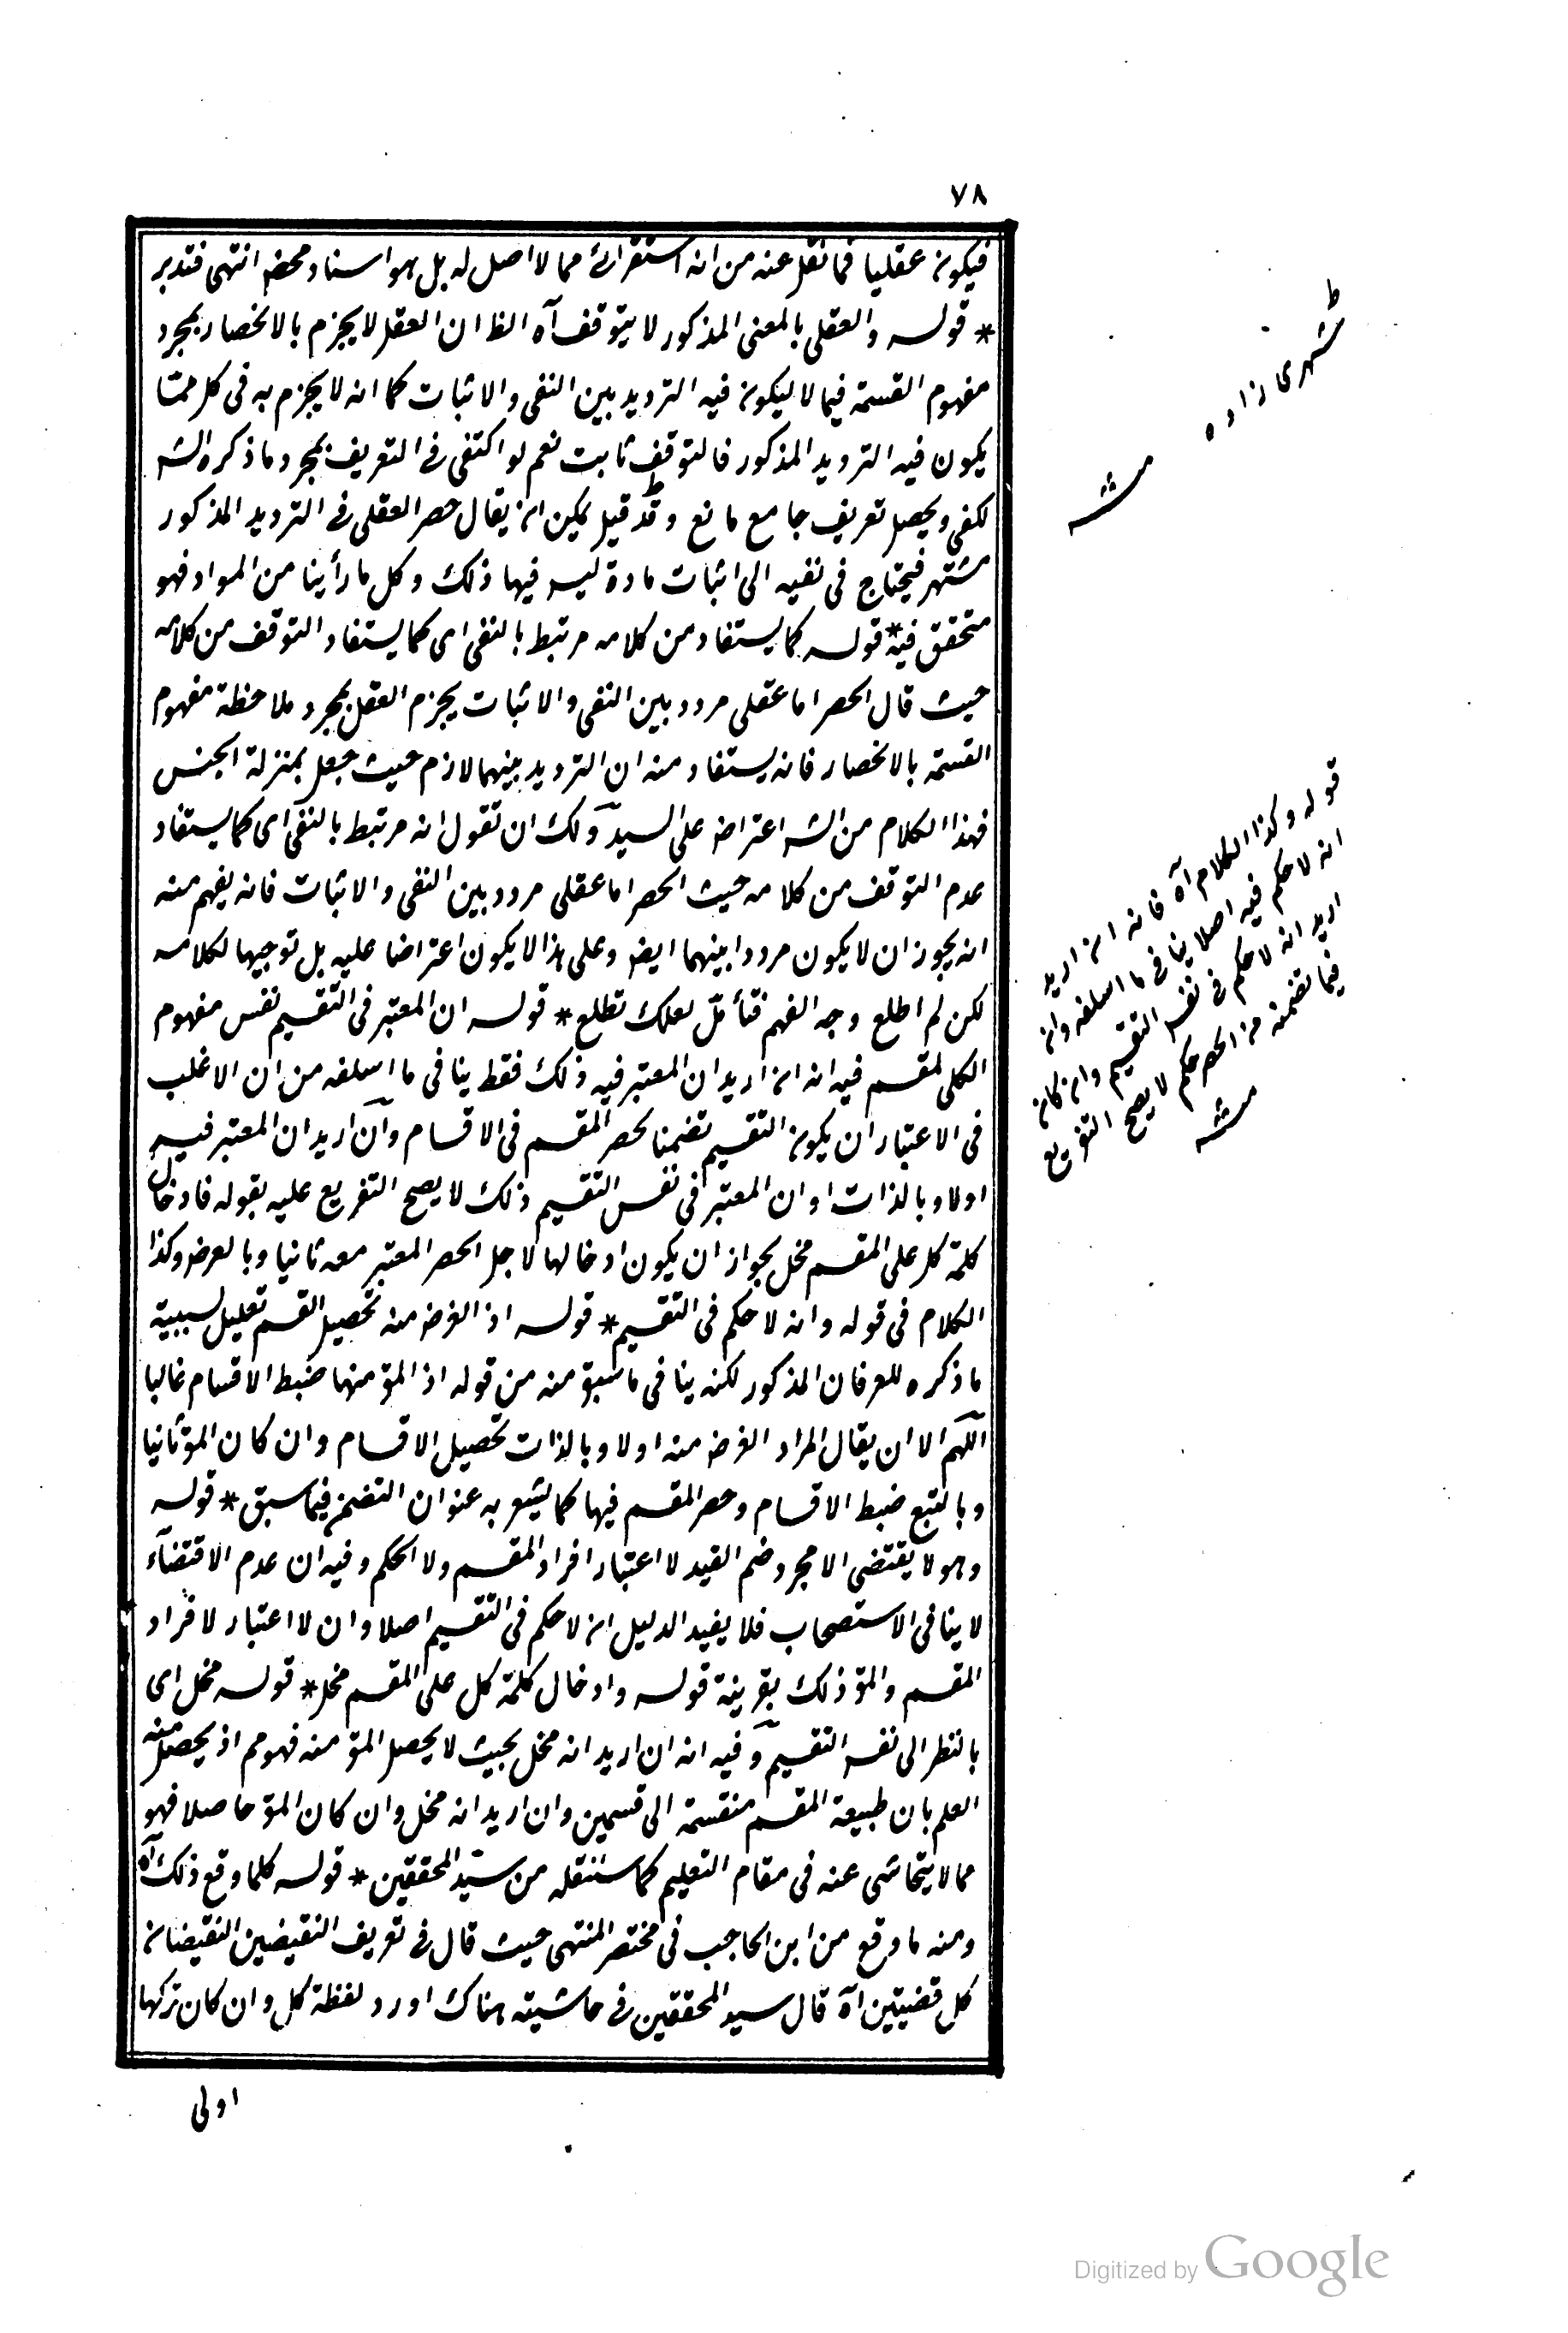 ٧٨
فيكون عقليا فما نقل عنه من انه استقرائى مما لا اصل له بل هو اسناد محض انتهى فتدبر
* قوله والعقلى بالمعنى المذكور لا يتوقف آه الظ ان العقل لا يجزم بالانحصار بمجرد
مفهوم القسمة فيما لا يكون فيه الترديد بين النفى والاثبات كما انه لا يجزم به فى كل ممّا
يكون فيه الترديد المذكور فالتوقف ثابت نعم لو اكتفى فى التعريف بمجرد ما ذكره الشه
لكفى ويحصل تعريف جامع مانع وقد قيل يمكن ان يقال حصر العقلى فى الترديد المذكور
مشتهر فيحتاج فى نفيه الى اثبات مادة ليس فيها ذلك وكل ما رأينا من المواد فهو
متحقق فيه * قوله كما يستفاد من كلامه مرتبط بالنفى اى كما يستفاد التوقف من كلامه
حيث قال الحصر اما عقلى مردد بين النفى والاثبات يجزم العقل بمجرد ملاحظة مفهوم
القسمة بالانحصار فانه يستفاد منه ان الترديد بينهما لازم حيث جعل بمنزلة الجنس
فهذا الكلام من الشه اعتراض على السيد ولك ان تقول انه مرتبط بالنفى اى كما يستفاد
عدم التوقف من كلامه حيث الحصر اما عقلى مردد بين النفى والاثبات فانه يفهم منه
انه يجوز ان لا يكون مرددا بينهما ايض وعلى هذا لا يكون اعتراضا عليه بل توجيها لكلامه
لكن لم اطلع وجه الفهم فتأمّل لعلك تطلع * قوله ان المعتبر فى التقسيم نفس مفهوم
الكلى لمقسم فيه انه ان اريد ان المعتبر فيه ذلك فقط ينافى ما اسلفه من ان الاغلب
فى الاعتبار ان يكون التقسيم تضمنا لحصر المقسم فى الاقسام وان اريد ان المعتبر فيه
اولا وبالذات او ان المعتبر فى نفس التقسيم ذلك لا يصح التفريع عليه بقوله فادخال
كلمة كل على المقسم مخل بجواز ان يكون ادخالها لاجل الحصر المعتبر معه ثانيا وبالعرض وكذا
الكلام فى قوله وانه لا حكم فى التقسيم * قوله اذ الغرض منه تحصيل القسم تعليل لسببية
ما ذكره للعرفان المذكور لكنه ينافى ما سبق منه من قوله اذ المق منها ضبط الاقسام غالبا
اللهم الا ان يقال المراد الغرض منه اولا وبالذات تحصيل الاقسام وان كان المق ثانيا
وبالتبع ضبط الاقسام وحصر المقسم فيها كما يشعر به عنوان التضمن فيما سبق * قوله
وهو لا يقتضى الا مجرد ضم القيد لا اعتبار افراد المقسم ولا الحكم وفيه ان عدم الاقتضآء
لا ينافى الاستصحاب فلا يفيد الدليل ان لا حكم فى التقسيم اصلا وان لا اعتبار لافراد
المقسم والمق ذلك بقرينة قوله وادخال كلمة كل على المقسم مخل * قوله مخل اى
بالنظر الى نفس التقسيم وفيه انه ان اريد انه مخل بحيث لا يحصل المق منه فهو مم اذ يحصل منه
العلم بان طبيعة المقسم منقسمة الى قسمين وان اريد انه مخل وان كان المق حاصلا فهو
مما لا يتحاشى عنه فى مقام التعليم كما سننقله من سيّد المحققين * قوله كلما وقع ذلك آه
ومنه ما وقع من ابن الحاجب فى مختصر المنتهى حيث قال فى تعريف النقيضين النقيضان
كل قضيتين آه قال سيد المحققين فى حاشيته هناك اورد لفظة كل وان كان تركها
اولى
ط
شهرى زاده
مشه
قوله وكذا الكلام آه فانه ان اريد
انه لا حكم فيه اصلا ينافى ما اسلفه وان
اريد انه لا حكم فى نفس التقسيم وان كان
فيما تضمنه من الحصر حكم لا يصح التفريع
مشه
Digitized by Google